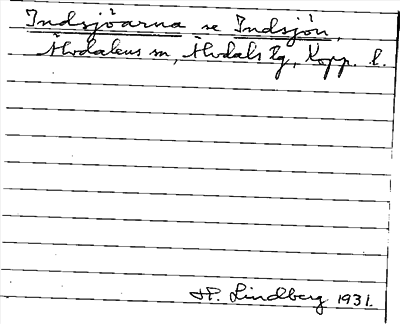 Indsjöarna se Indsjön,
Älvdalens sn, Älvdals tg, Kopp. l.
H. Lindberg 1931.